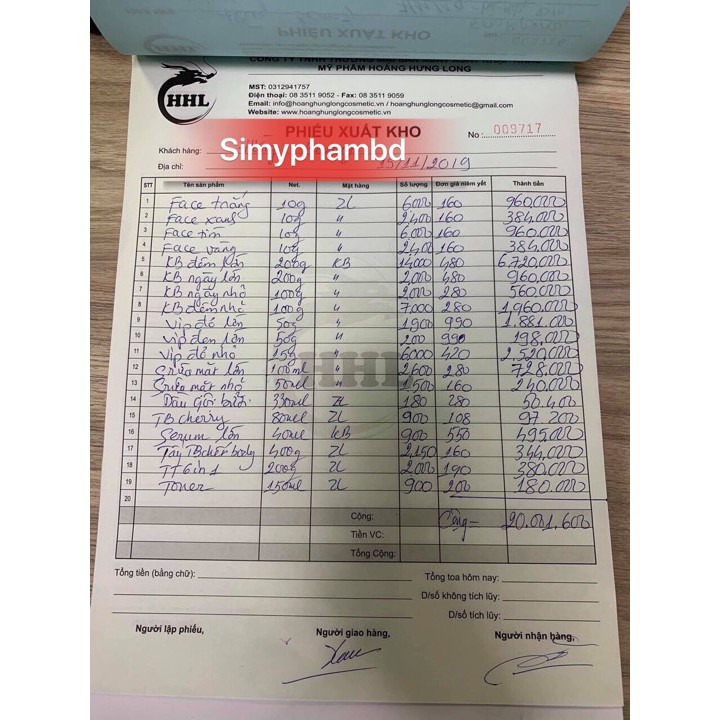 PHIẾU XUẤT KHO
MỸ PHẨM HOÀNG HƯNG LONG
HHL
MST: 0312941757
Điện thoại: 08 3511 9052 - Fax: 08 3511 9059
Email: info@hoanghunglongcosmetic.vn / hoanghunglongcosmetic@gmail.com
Website: www.hoanghunglongcosmetic.vn
PHIẾU XUẤT KHO
No : 009717
Khách hàng:
Simyphambd
Địa chỉ: 15/11/2019
STT Tên sản phẩm Net. Mặt hàng Số lượng Đơn giá niêm yết Thành tiền
1 Face trắng 10g ZL 6000 160 960.000
2 Face xanh 10g " 2400 160 384.000
3 Face tím 10g " 6000 160 960.000
4 Face vàng 10g " 2400 160 384.000
5 KB đêm lớn 200g KB 14000 480 6.720.000
6 KB ngày lớn 200g " 2000 480 960.000
7 KB ngày nhỏ 100g " 2000 280 560.000
8 KB đêm nhỏ 100g " 7000 280 1,960.000
9 Vip đỏ lớn 50g " 1900 990 1.881.000
10 Vip đen lớn 50g " 200 990 198.000
11 Vip đỏ nhỏ 15g " 6000 420 2,520.000
12 Sữa mắt lớn 100ml " 2600 280 728.000
13 Sữa mắt nhỏ 50ml " 1500 160 240.000
14 Dầu Gội 330ml ZL 180 280 50.400
15 TB cherry 80ml ZL 900 108 97.200
16 Serum lớn 40ml KB 900 550 495.000
17 body 400g ZL 2,150 160 344.000
18 TT 6in1 200g ZL 2000 190 380.000
19 Toner 150ml ZL 900 200 180.000
20
HHL
Cộng: Cộng= 20.001.600
Tiền VC:
Tổng Cộng:
Tổng tiền (bằng chữ): Tổng toa hôm nay:
D/số không tích lũy:
D/số tích lũy:
Người lập phiếu, Người giao hàng, Người nhận hàng,